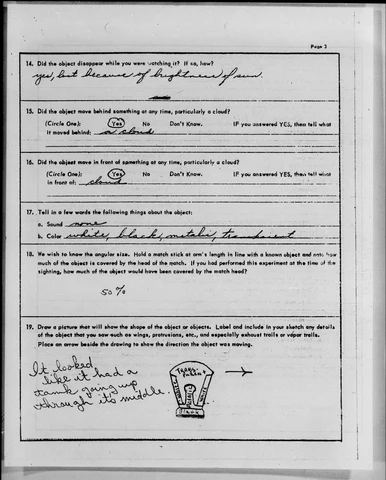 Page 3
14. Did the object disappear while you were watching it? If so, how?
yes, but because of brightness of sun.
15. Did the object move behind something at any time, particularly a cloud?
(Circle One): Yes No Don't Know. IF you answered YES, then tell what
it moved behind: a cloud
16. Did the object move in front of something at any time, particularly a cloud?
(Circle One): Yes No Don't Know. IF you answered YES, then tell what
in front of: cloud
17. Tell in a few words the following things about the object:
a. Sound none
b. Color white, black, metalic,
18. We wish to know the angular size. Hold a match stick at arm's length in line with a known object and note how
much of the object is covered by the head of the match. If you had performed this experiment at the time of the
sighting, how much of the object would have been covered by the match head?
50%
19. Draw a picture that will show the shape of the object or objects. Label and include in your sketch any details
of the object that you saw such as wings, protrusions, etc., and especially exhaust trails or vapor trails.
Place an arrow beside the drawing to show the direction the object was moving.
It looked
like it had a
tank going up
through its middle.
Black